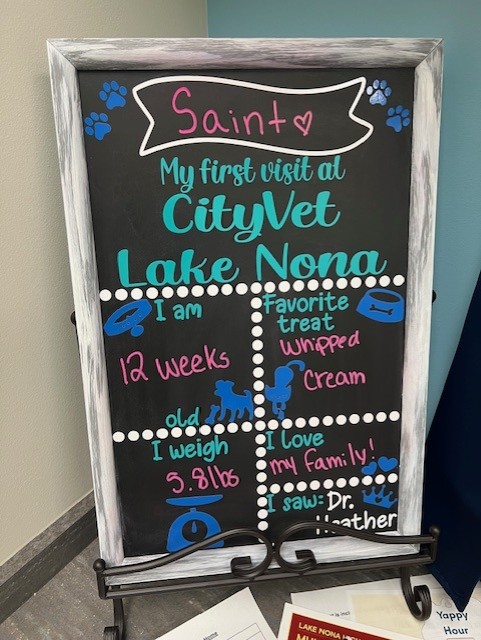 Saint
My first visit at
CityVet
Lake Nona
I am
12 weeks
old
Favorite
treat
Whipped
Cream
I weigh
5.8lbs
I love
my family!
I saw: Dr.
Heather
LAKE NONA HIGH
Yappy
Hour